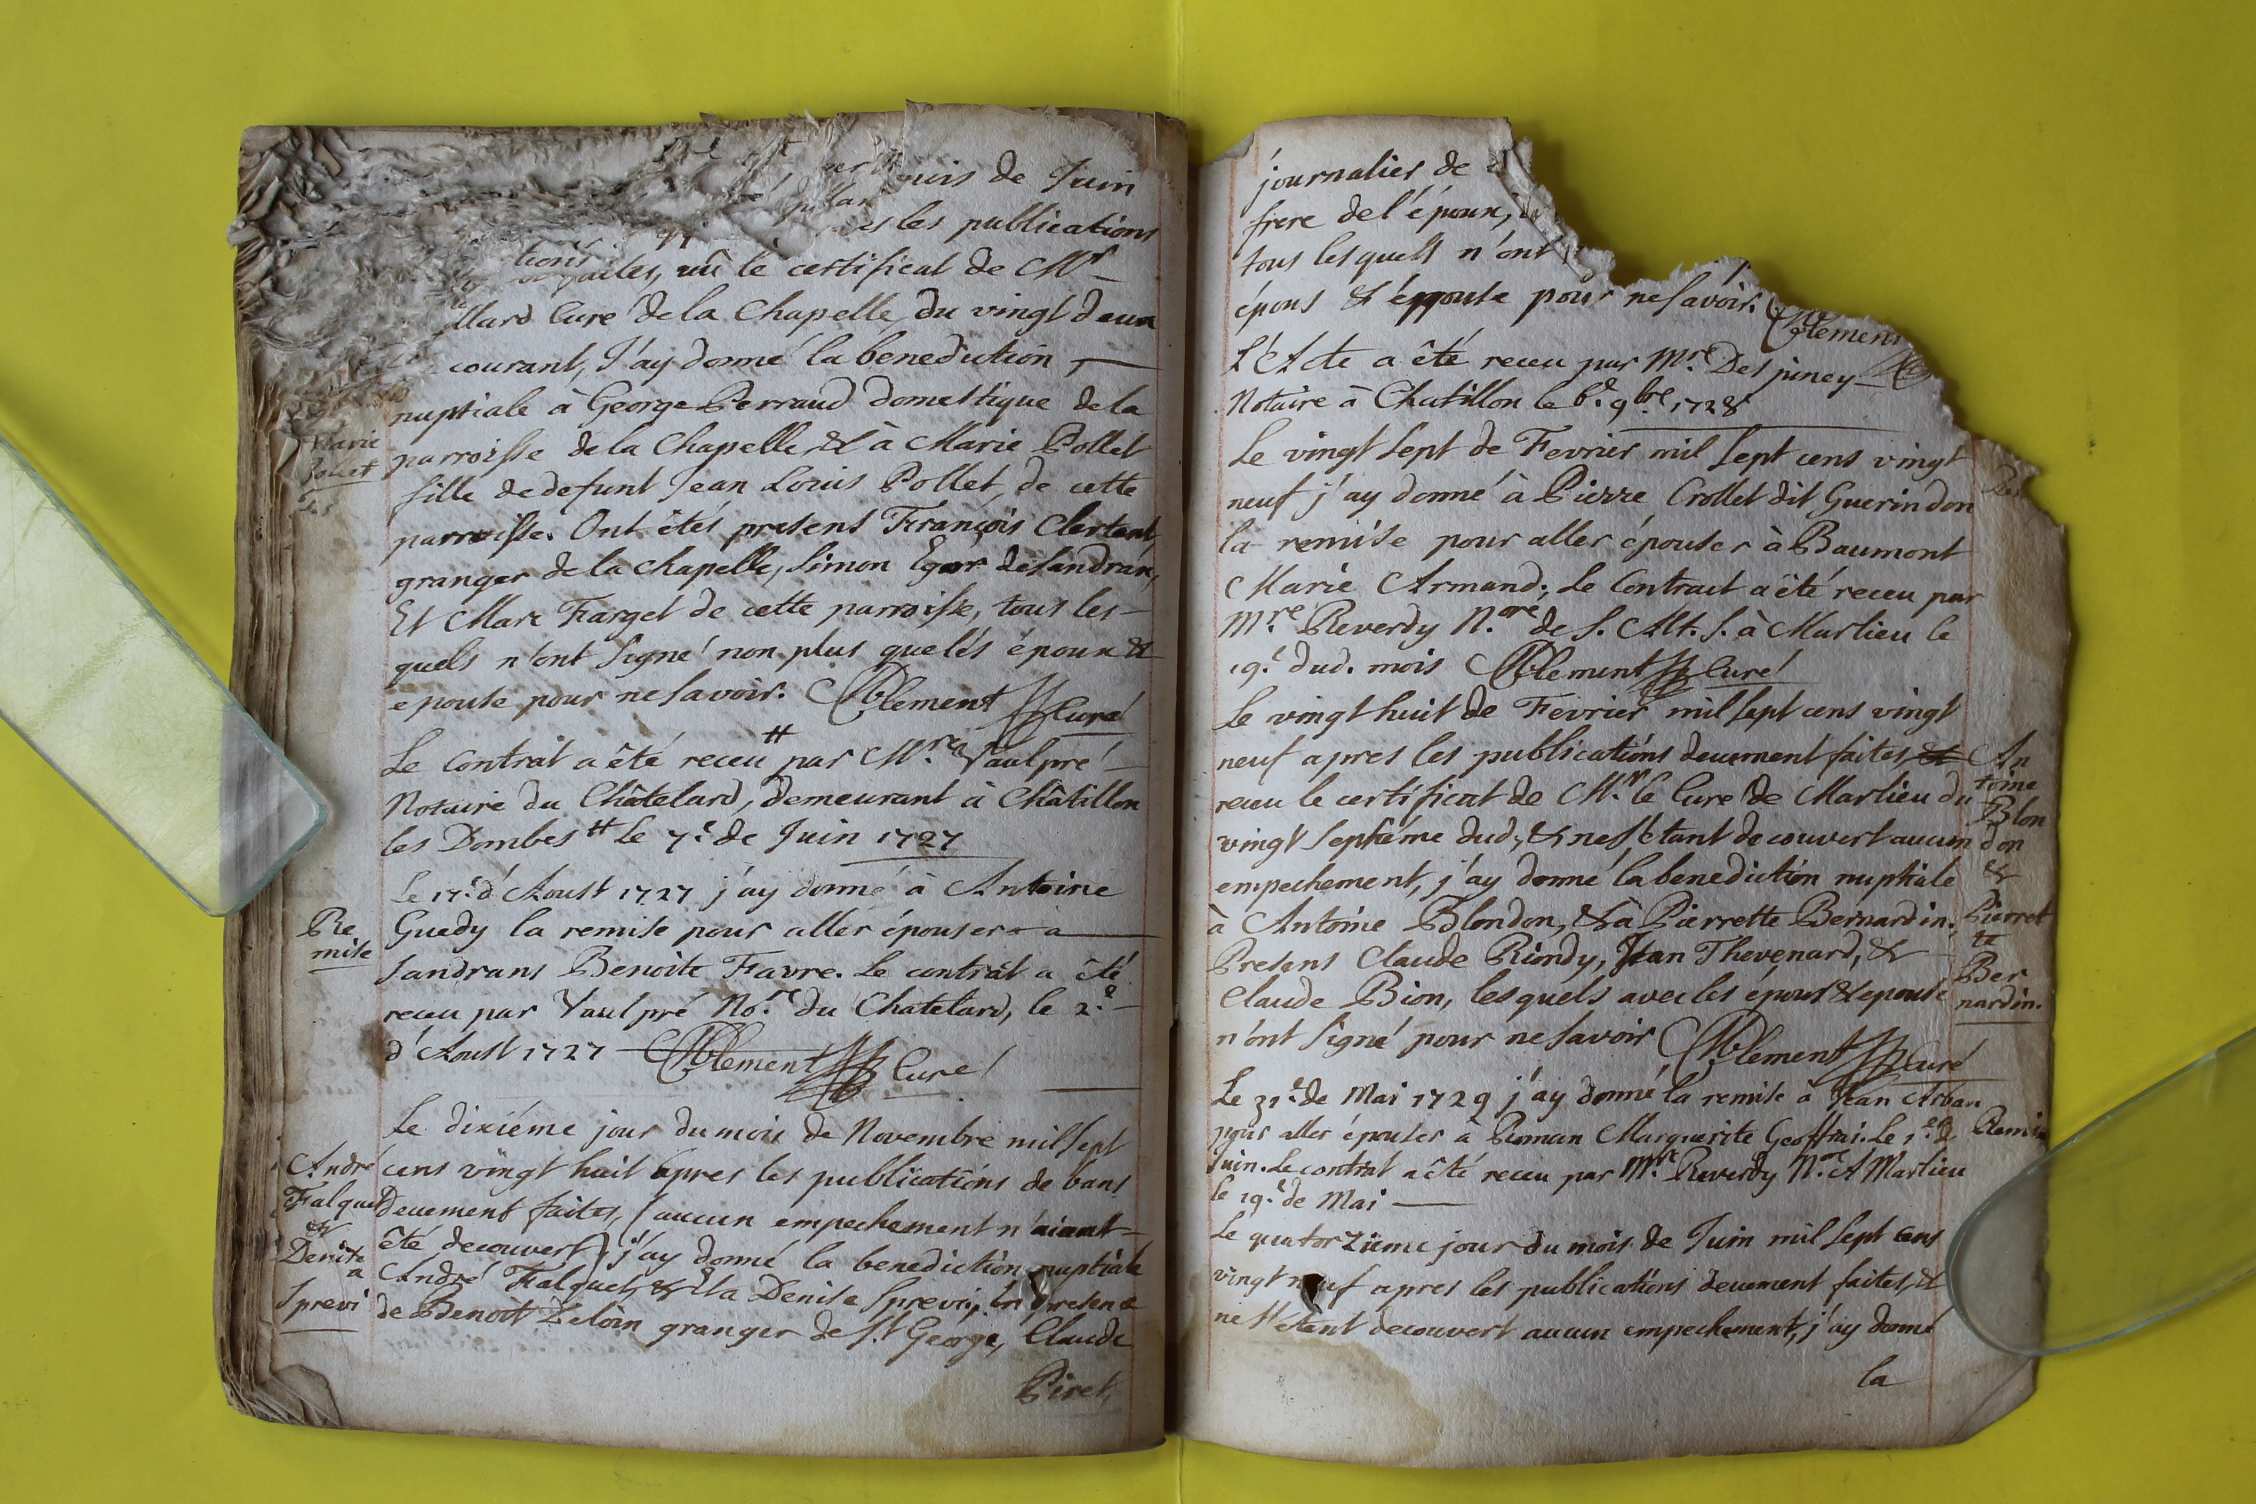 mois de Juin
es les publications
faites, vû le certificat de Mr
llard Curé de la Chapelle, du vingt deux
courant, J'ay donné la benediction
nuptiale à George Perraud domestique de la
Marie
parroisse de la Chapelle & à Marie Pollet
Pollet
fille de defunt Jean Louis Pollet, de cette
parroisse. Ont êtés presens François Clertant,
granger de la chapelle, Simon Egar de Sandrans,
Et Marc Farget de cette parroisse, tous les-
quels n'ont signé non plus que lés époux &
epouse pour ne savoir. Clement Curé
Le Contrat a êté receu # par Mre Vaulpré
Notaire du Châtelard, demeurant à Châtillon
les Dombes # le 7e. de Juin 1727
Le 17e. d'Aoust 1727 j'ay donné à Antoine
Re
mise
Guedy la remise pour aller épouser à
Sandrans Benoite Favre. Le contrat a êté
receu par Vaulpré No.re du Chatelard, le 2e.
d'Aoust 1727 Clement Curé
Le dixiéme jour du mois de Novembre mil sept
André
Falquet
&
Denise
a
Sprevi
cens vingt huit apres les publications de bans
deuement faites, (aucun empechement n'aiant
êté decouvert) j'ay donné la benediction nuptiale
André Falquet, & à la Denise Sprevi, En presence
de Benoit Zeloin granger de St. George, Claude
Piret,
journalier de
frere de l'époux,
tous lesquels n'ont
épous & épouse pour ne savoir. Clement
L'Acte a êté receu par Mre. Despiney
Notaire à Chatillon le 6e. 9bre. 1728
Le vingt sept de Fevrier mil sept cens vingt
neuf j'ay donné à Pierre Crollet dit Guerindon
la remise pour aller épouser à Baumont
Marie Armand; Le Contract a êté receu par
Mre. Reverdy N.ore de S. Alt. S. à Marlieu le
19e. dud. mois Clement Curé
Le vingt huit de Fevrier mil sept cens vingt
neuf apres les publications deuement faites, &
receu le certificat de Mr. le Curé de Marlieu du
vingt septiéme dud., & ne s'étant decouvert aucun
empechement, j'ay donné la benediction nuptiale
à Antoine Blondon, & à Pierrette Bernardin.
Presens Claude Rindy, Jean Thevenard, &
Claude Bion, lesquels avec les épous & epouse
n'ont signé pour ne savoir Clement Curé
An
toine
Blon
don
&
Pierret
te
Ber
nardin.
Le 31e. de Mai 1729 j'ay donné la remise à Jean Arban
pour aller épouser à Roman Marguerite Geoffrai. Le 1er. de
Remise
Juin. Le contrat a êté receu par Mre. Reverdy N.ore A Marlieu
le 19e. de Mai
Le quatorzieme jour du mois de Juin mil sept cens
vingt neuf apres les publications deuement faites, &
ne s'étant decouvert aucun empechement, j'ay donné
la